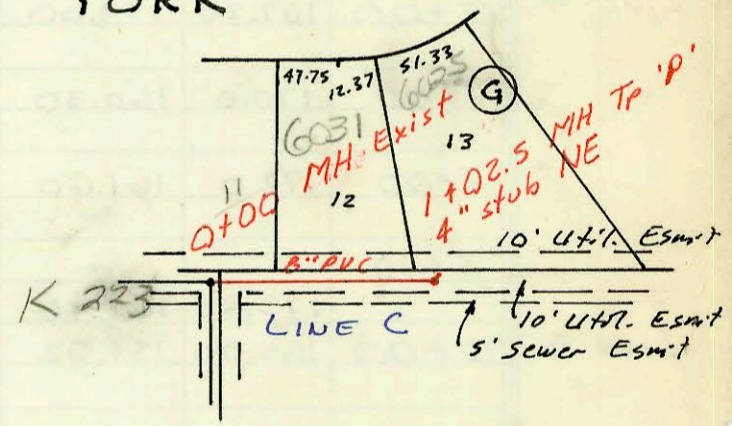 YORK
47.75
12.37
51.33
6025
G
6031
13
11
12
0+00 MH Exist
1+02.5 MH Tp 'P'
4" stub NE
10' Util. Esm't
8" PVC
K 223
LINE C
10' Util. Esm't
5' Sewer Esm't